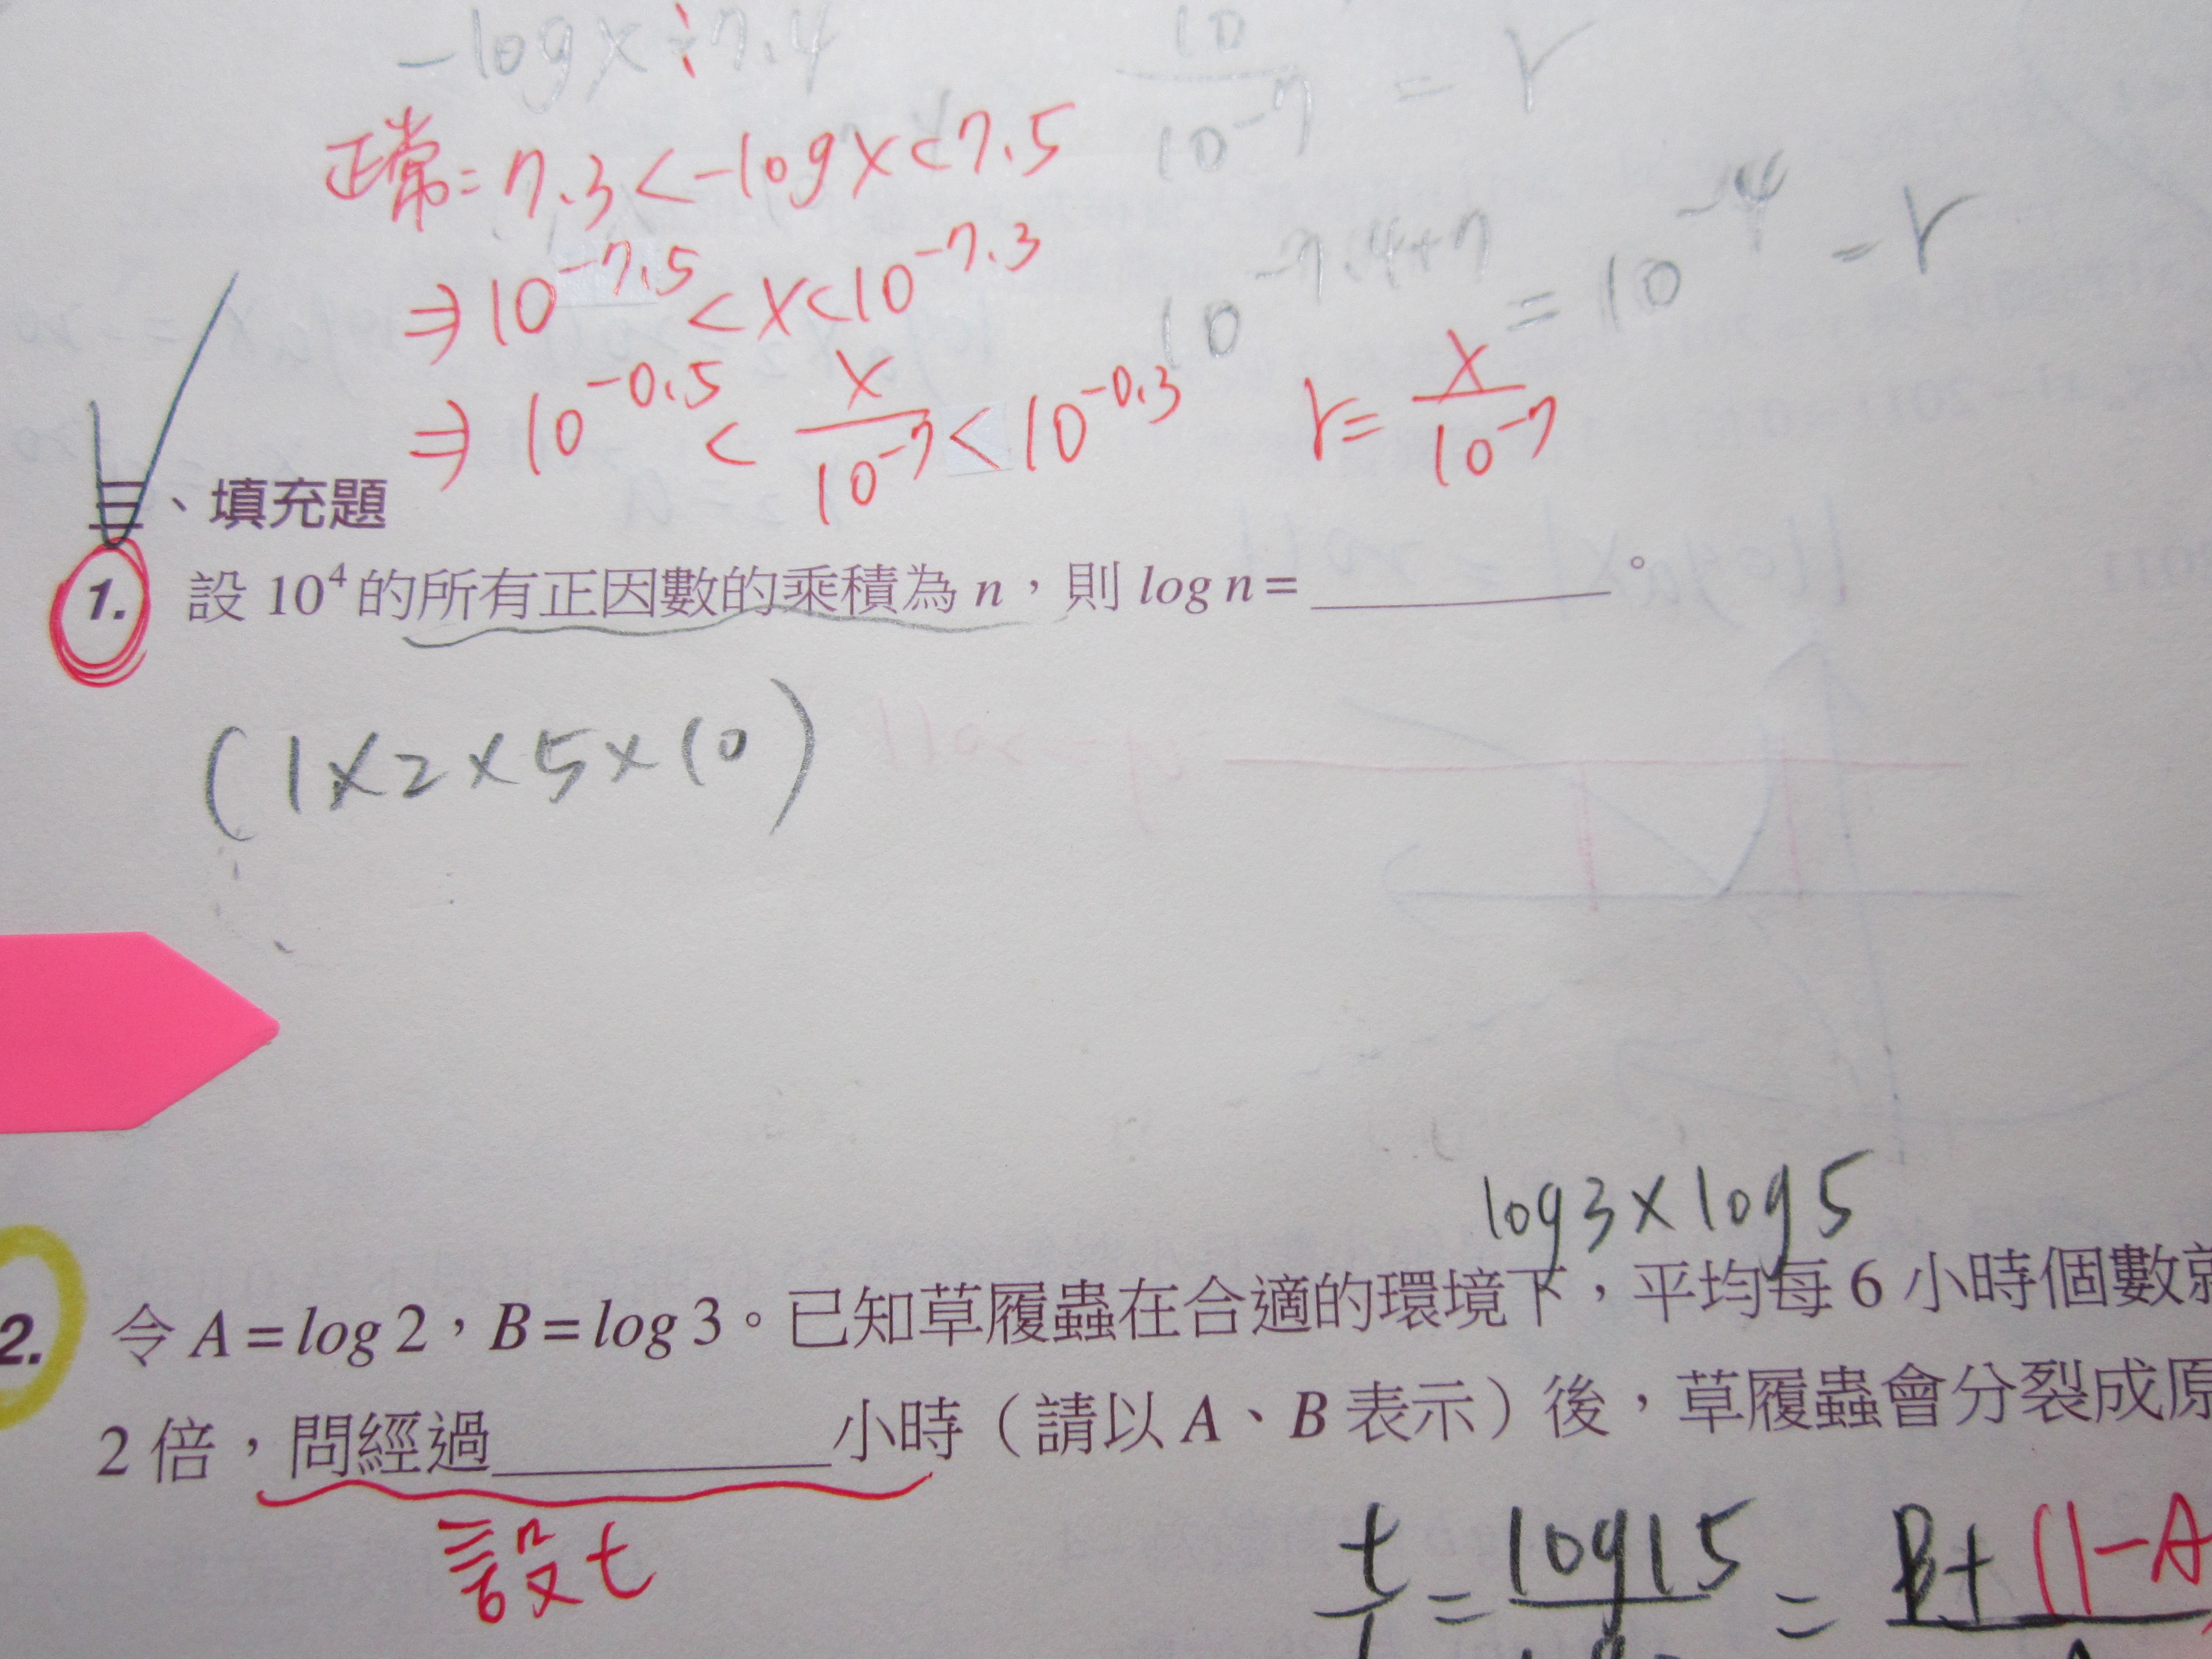 -logx÷7.4
10/10⁻⁷ = r
正常=7.3<-logx<7.5
⇒10^-7.5<x<10^-7.3
10^-7.4+7=10^-4=r
⇒10^-0.5<x/10⁻⁷<10^-0.3 r=x/10⁻⁷
三、填充題
1. 設 10⁴ 的所有正因數的乘積為 n，則 log n = ________。
(1×2×5×10)
log3×log5
2. 令 A = log 2，B = log 3。已知草履蟲在合適的環境下，平均每 6 小時個數
2 倍，問經過________小時（請以 A、B 表示）後，草履蟲會分裂成原
設t
t = log15 = B+(1-A